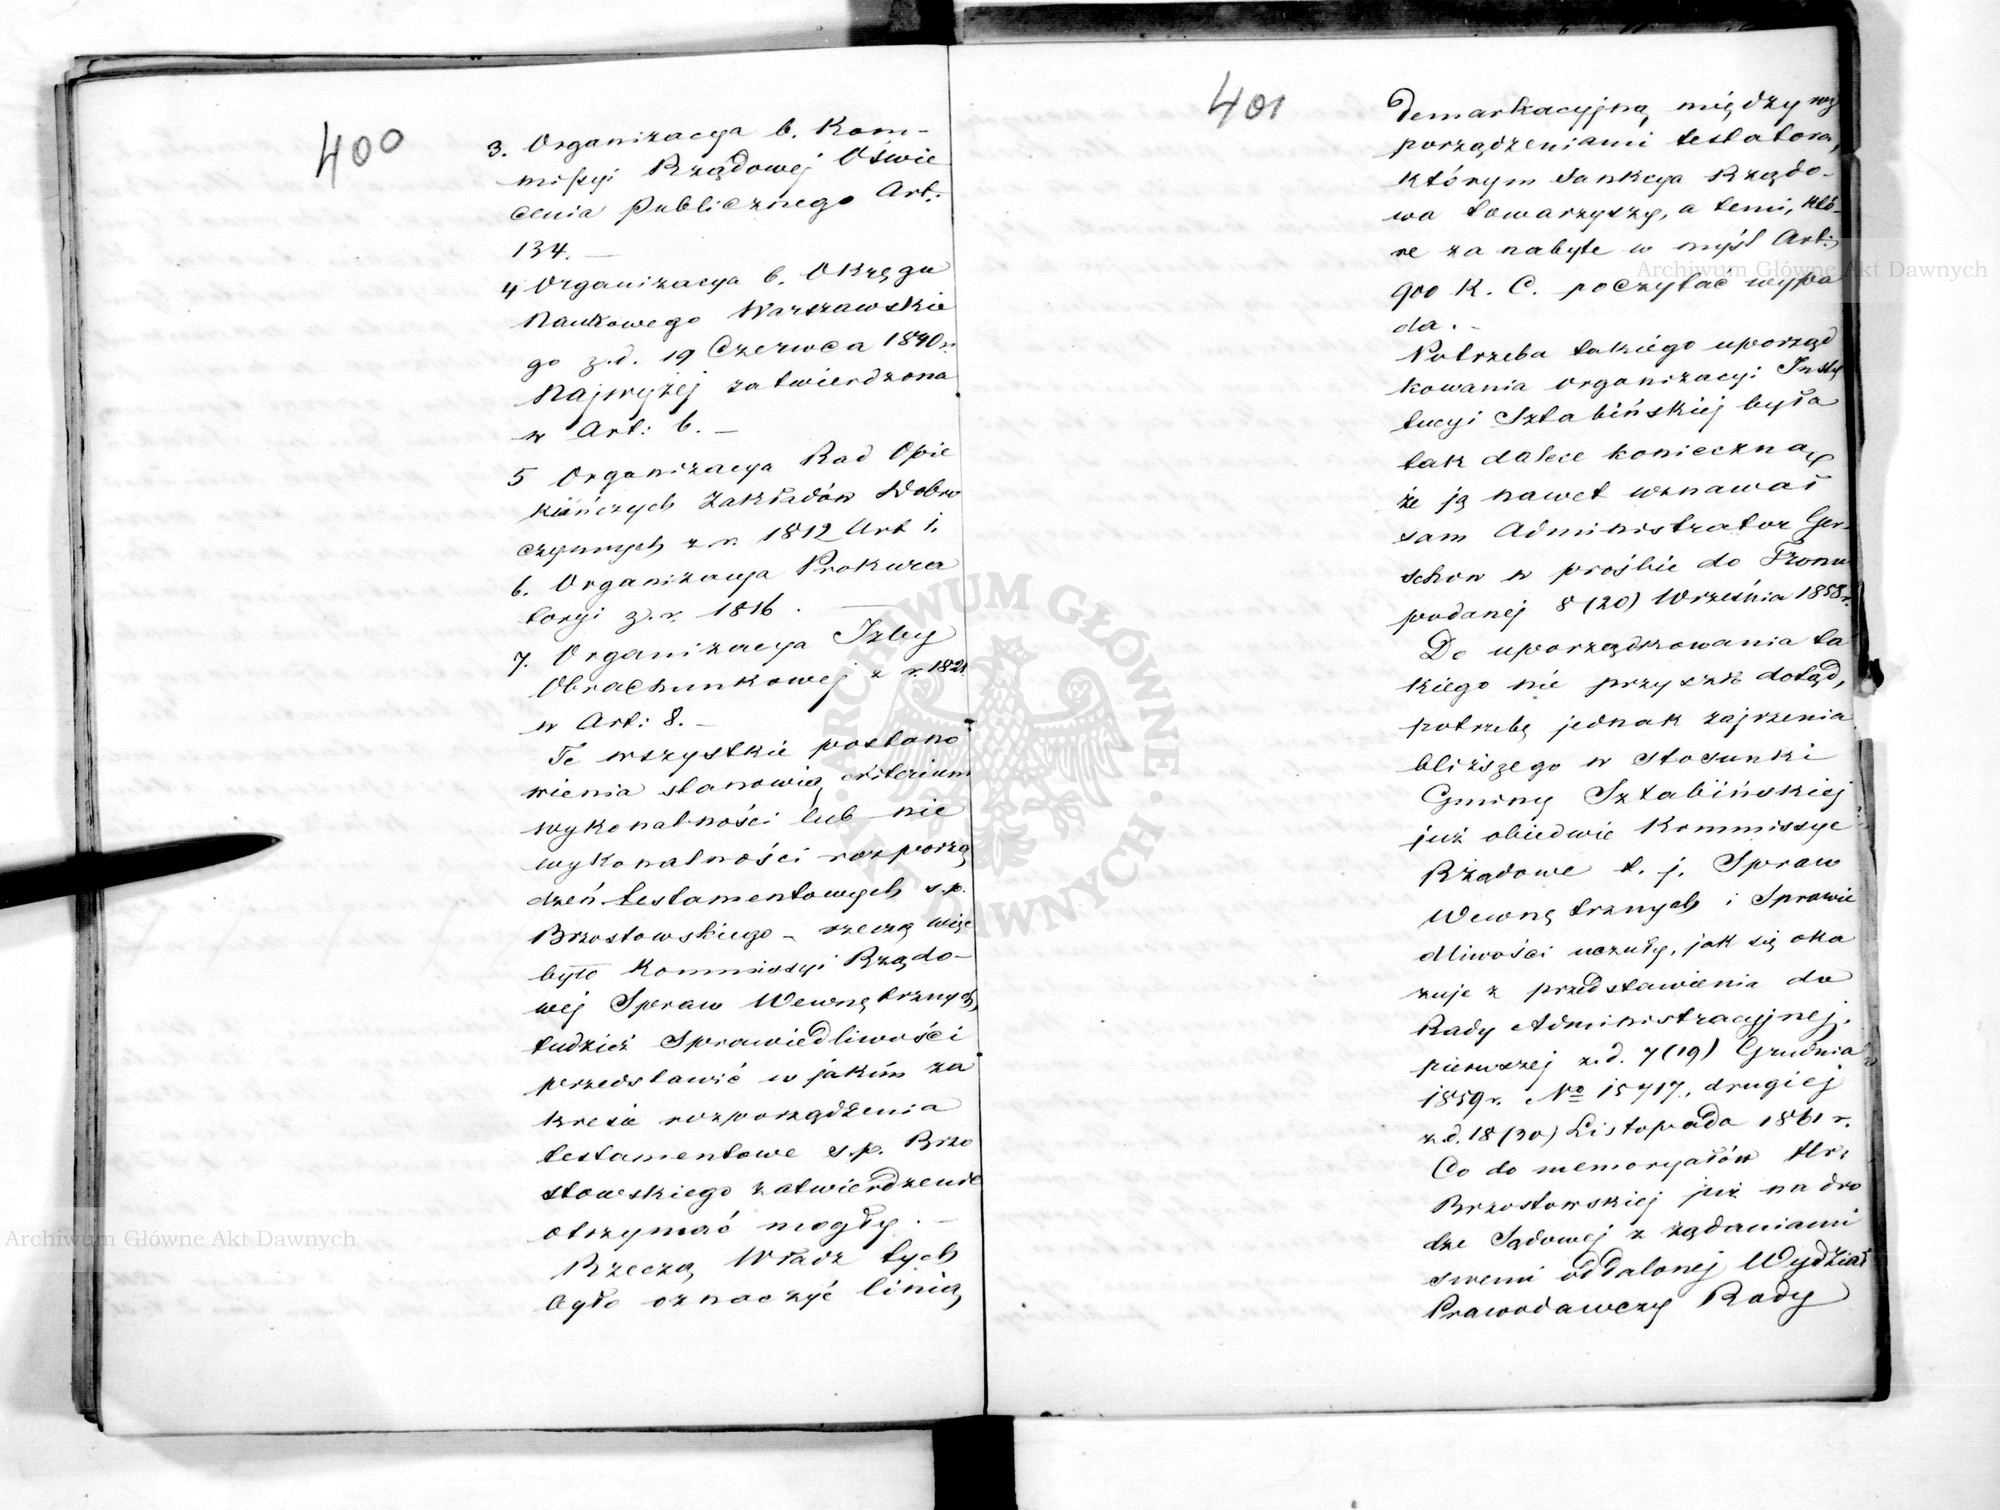 400
3. Organizacya b. Kom-
missyi Rządowej Oświe
cenia Publicznego Art:
134. —
4 Organizacya b. Okręgu
Naukowego Warszawskie
go z.d. 19 Czerwca 1840 r.
Najwyżej zatwierdzona
w Art: 6. —
5 Organizacya Rad Opie
kuńczych Zakładów Dobro
czynnych z r. 1812 Art 1.
6. Organizacya Prokura
toryi z. r. 1816. —
7. Organizacya Izby
Obrachunkowej z r. 1821
w Art: 8. —
Te wszystkie postano
wienia stanowią criterium
wykonalności lub nie
wykonalności rozporzą
dzeń testamentowych s.p.
Brzostowskiego – rzeczą więc
było Kommissyi Rządo-
wej Spraw Wewnętrznych,
tudzież Sprawiedliwości
przedstawić w jakim za
kresie rozporządzenia
testamentowe s.p. Brzo
stowskiego zatwierdzenie
otrzymać mogły. —
Rzeczą Władz tych
było oznaczyć linią
401
demarkacyjną między roz
porządzeniami testatora,
którym Sankcya Rządo-
wa towarzyszy, a temi, któ-
re za nabyte w myśl Art:
900 K. C. poczytać wypa
da. —
Potrzeba takiego uporząd
kowania organizacyi Insty
tucyi Sztabińskiej była
tak dalece konieczną,
że ją nawet uznawał
sam Administrator Ger-
schow w prośbie do Tronu
podanej 8 (20) Września 1858 r.
Do uporządkowania ta
kiego nie przyszło dotąd,
potrzebę jednak zajrzenia
bliższego w stosunki
Gminy Sztabińskiej
już obiedwie Kommissye
Rządowe t. j. Spraw
Wewnętrznych i Sprawie
dliwości uczuły, jak się oka
zuje z przedstawienia do
Rady Administracyjnej.
pierwszej z.d. 7 (19) Grudnia
1859 r. No 15717., drugiej
z.d. 18 (30) Listopada 1861 r.
Co do memoryałów Hr:
Brzostowskiej już na dro
dze Sądowej z żądaniami
swemi oddalonej Wydział
Prawodawczy Rady
Archiwum Główne Akt Dawnych
Archiwum Główne Akt Dawnych
ARCHIWUM GŁÓWNE · AKT DAWNYCH ·